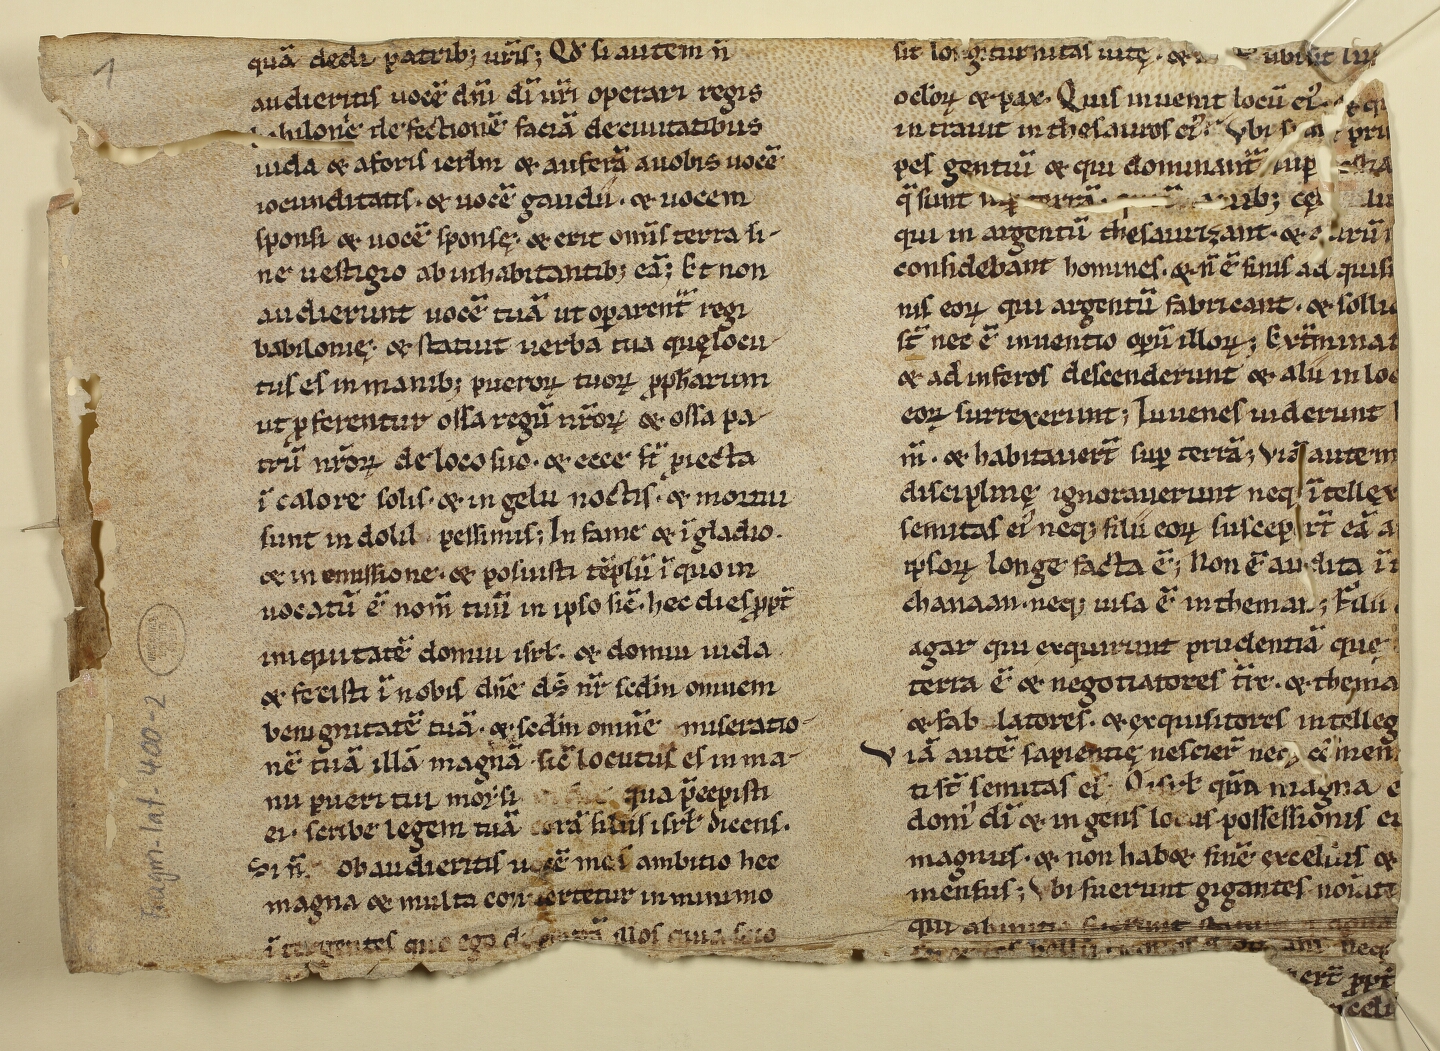 quā dedi patrib; ur̄is; Qđ si autem n̄
audieritis uocē dn̄i dī ur̄i operari regis
babilonię defectionē faciā decivitatibus
iuda & aforis ierl̄m & auferā auobis uocē
iocunditatis· & uocē gaudii· & uocem
sponsi & uocē sponsę· & erit om̄is terra si-
ne uestigio ab inhabitantib; eā; Et non
audierunt uocē tuā ut oꝑarent̄ regi
babilonię· & statuit uerba tua quę locu-
tus es in manib; pueroꝝ tuoꝝ ꝓph̄arum
ut ꝓferentur ossa regū nr̄oꝝ & ossa pa-
trū nr̄oꝝ de loco suo· & ecce st̄ ꝓiecta
ī calore solis· & in gelu noctis· & mortui
sunt in dolib pessimis; In fame & ī gladio·
& in emissione· & posuisti tēplū ī quo in
uocatū ē nom̄ tuū in ipso sic̄· hec dies ꝓpt̄
iniquitatē domui isrl̄· & domui iuda
& fecisti ī nobis dn̄e ds̄ nr̄ scdm omnem
benignitatē tuā· & scdm omnē miseratio-
nē tuā illā magnā sic̄ locutus es in ma-
nu pueri tui moysi qua p̄cepisti
ei· scribe legem tuā corā filiis isrl̄ dicens·
Si n̄ obaudieritis uocē meā ambitio hec
magna & multa conuertetur in minimo
ī ter gentes quo ego illos quia scio
sit longiturnitas uitę· & ubi sit lu
oculoꝝ & pax· Quis inuenit locū ei'· & q
intrauit in thesauros ei'· Vbi s prin
pes gentiū & qui dominant̄ sup bestia
q̄ sunt terrā
qui in argentū thesaurizant· & aurū ī
considebant homines· & n̄ ē finis ad quisi
nis eoꝝ qui argentū fabricant· & sollici
st̄ nec ē inuentio oꝑū illoꝝ; Ext̄minat
& ad inferos descenderunt & alii in loc
eoꝝ surrexerunt; Iuuenes uiderunt l
m̄· & habitauer̄t suꝑ terrā; Viā autem
disciplinę ignorauerunt neq ītellex
semitas ei' neq; filii eoꝝ susceper̄t eā a
ipsoꝝ longe facta ē; Non ē audita ī t
chanaan· neq; uisa ē in theman; Filii
agar qui exquirunt prudentiā que
terra ē & negotiatores t̄rę· & thema
& fabulatores· & exquisitores intelleg
Viā autē sapientię nescier̄ neq; cōmem
ti st̄ semitas ei'· O isrl̄ quā magna e
dom' dī & ingens locus possessionis ei
magnus· & non hab& finē excelsus &
mensus; Vbi fuerunt gigantes noīati
qui abinitio fuerunt
neq
ꝓpt̄